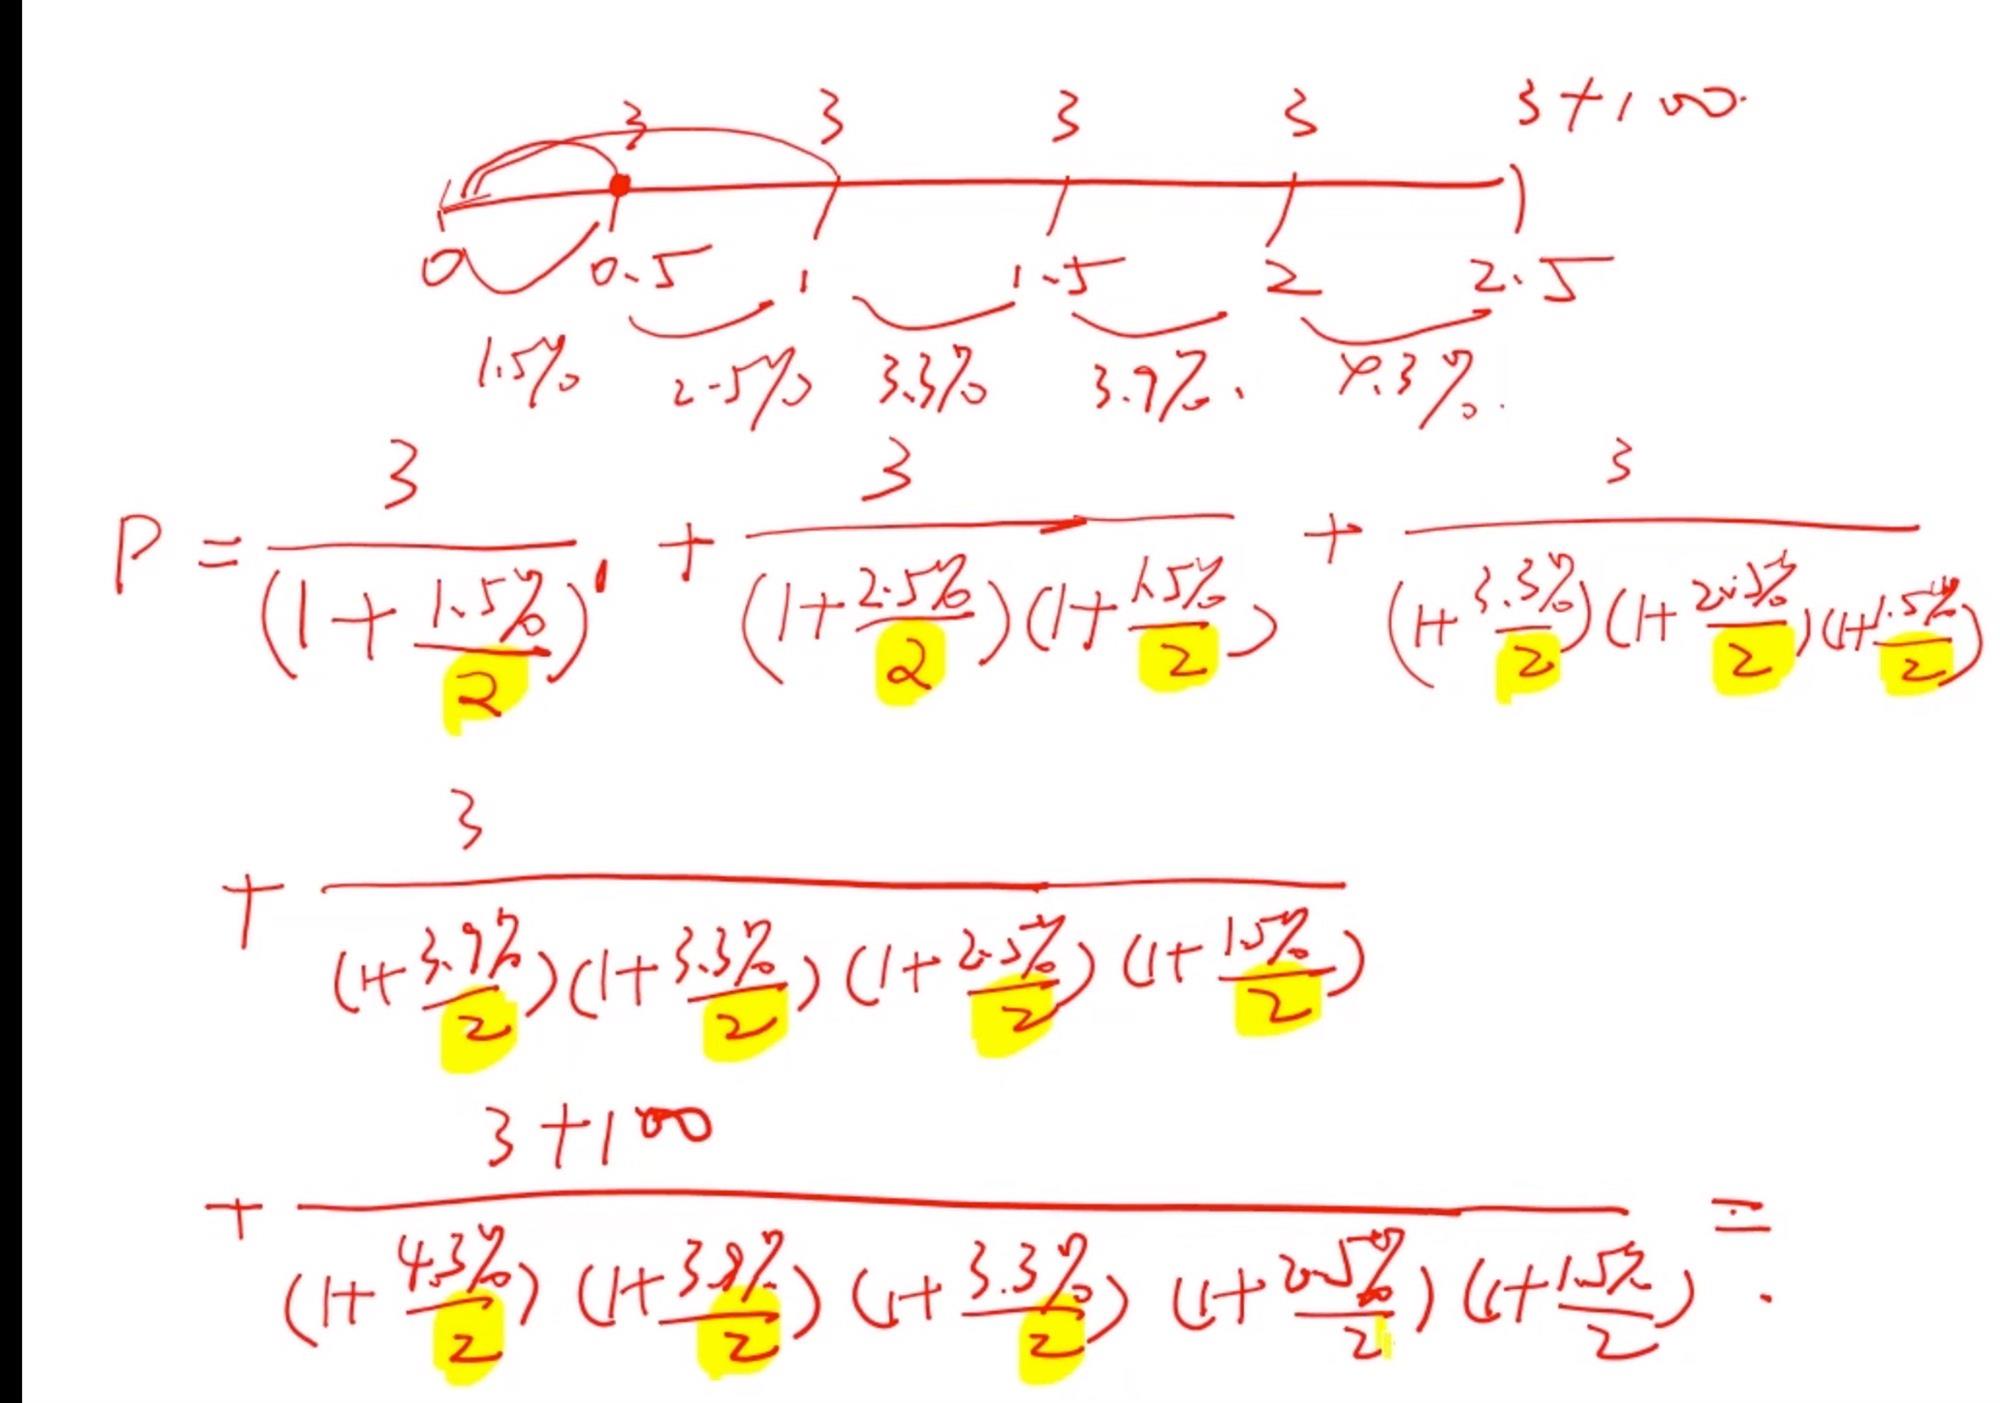 3 3 3 3 3+100
0 0.5 1 1.5 2 2.5
1.5% 2.5% 3.3% 3.9% 4.3%
3 3 3
P = ─── + ─── + ───
(1+1.5%/2)¹ (1+2.5%/2)(1+1.5%/2) (1+3.3%/2)(1+2.5%/2)(1+1.5%/2)
3
+ ───
(1+3.9%/2)(1+3.3%/2)(1+2.5%/2)(1+1.5%/2)
3+100
+ ─── =
(1+4.3%/2)(1+3.9%/2)(1+3.3%/2)(1+2.5%/2)(1+1.5%/2)